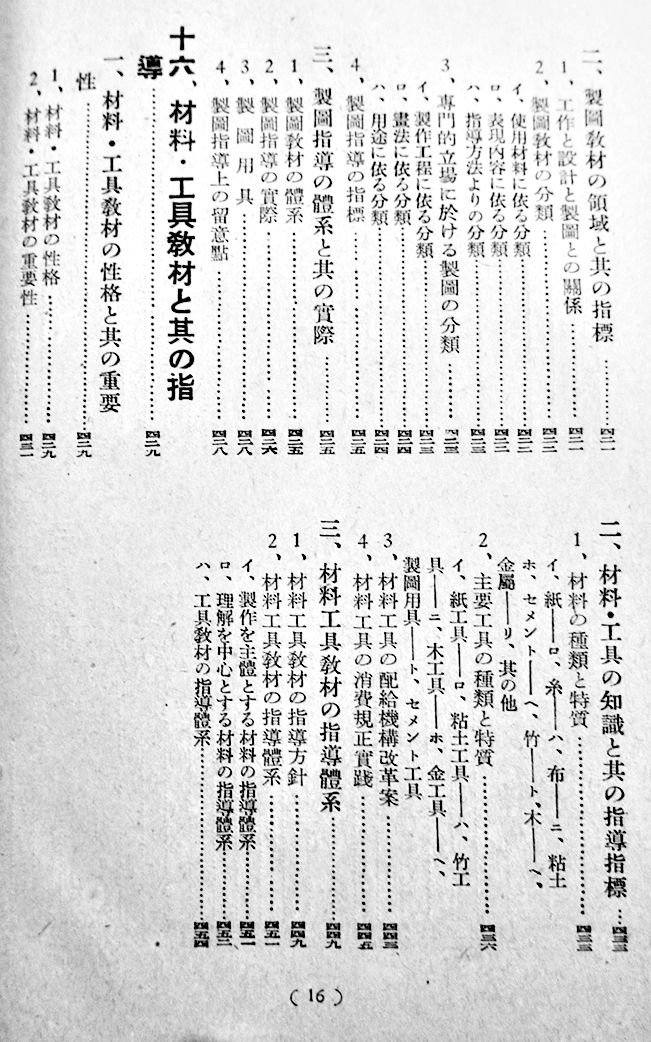 二、製圖敎材の領域と其の指標…………四二一
1、工作と設計と製圖との關係…………四二一
2、製圖敎材の分類…………四二二
イ、使用材料に依る分類…………四二二
ロ、表現内容に依る分類…………四二二
ハ、指導方法よりの分類…………四二二
3、專門的立場に於ける製圖の分類…………四二三
イ、製作工程に依る分類…………四二三
ロ、畫法に依る分類…………四二四
ハ、用途に依る分類…………四二四
4、製圖指導の指標…………四二五
三、製圖指導の體系と其の實際…………四二五
1、製圖敎材の體系…………四二五
2、製圖指導の實際…………四二六
3、製圖用具…………四二八
4、製圖指導上の留意點…………四二八
十六、材料・工具敎材と其の指
導…………四二九
一、材料・工具敎材の性格と其の重要
性…………四二九
1、材料・工具敎材の性格…………四二九
2、材料・工具敎材の重要性…………四三一
二、材料・工具の知識と其の指導指標…四三三
1、材料の種類と特質…………四三三
イ、紙――ロ、糸――ハ、布――ニ、粘土
ホ、セメント――ヘ、竹――ト、木――ヘ、
金屬――リ、其の他
2、主要工具の種類と特質…………四三六
イ、紙工具――ロ、粘土工具――ハ、竹工
具――ニ、木工具――ホ、金工具――ヘ、
製圖用具――ト、セメント工具
3、材料工具の配給機構改革案…………四四三
4、材料工具の消費規正實踐…………四四五
三、材料工具敎材の指導體系…………四四九
1、材料工具敎材の指導方針…………四四九
2、材料工具敎材の指導體系…………四五一
イ、製作を主體とする材料の指導體系…………四五一
ロ、理解を中心とする材料の指導體系…………四五二
ハ、工具敎材の指導體系…………四五四
(16)